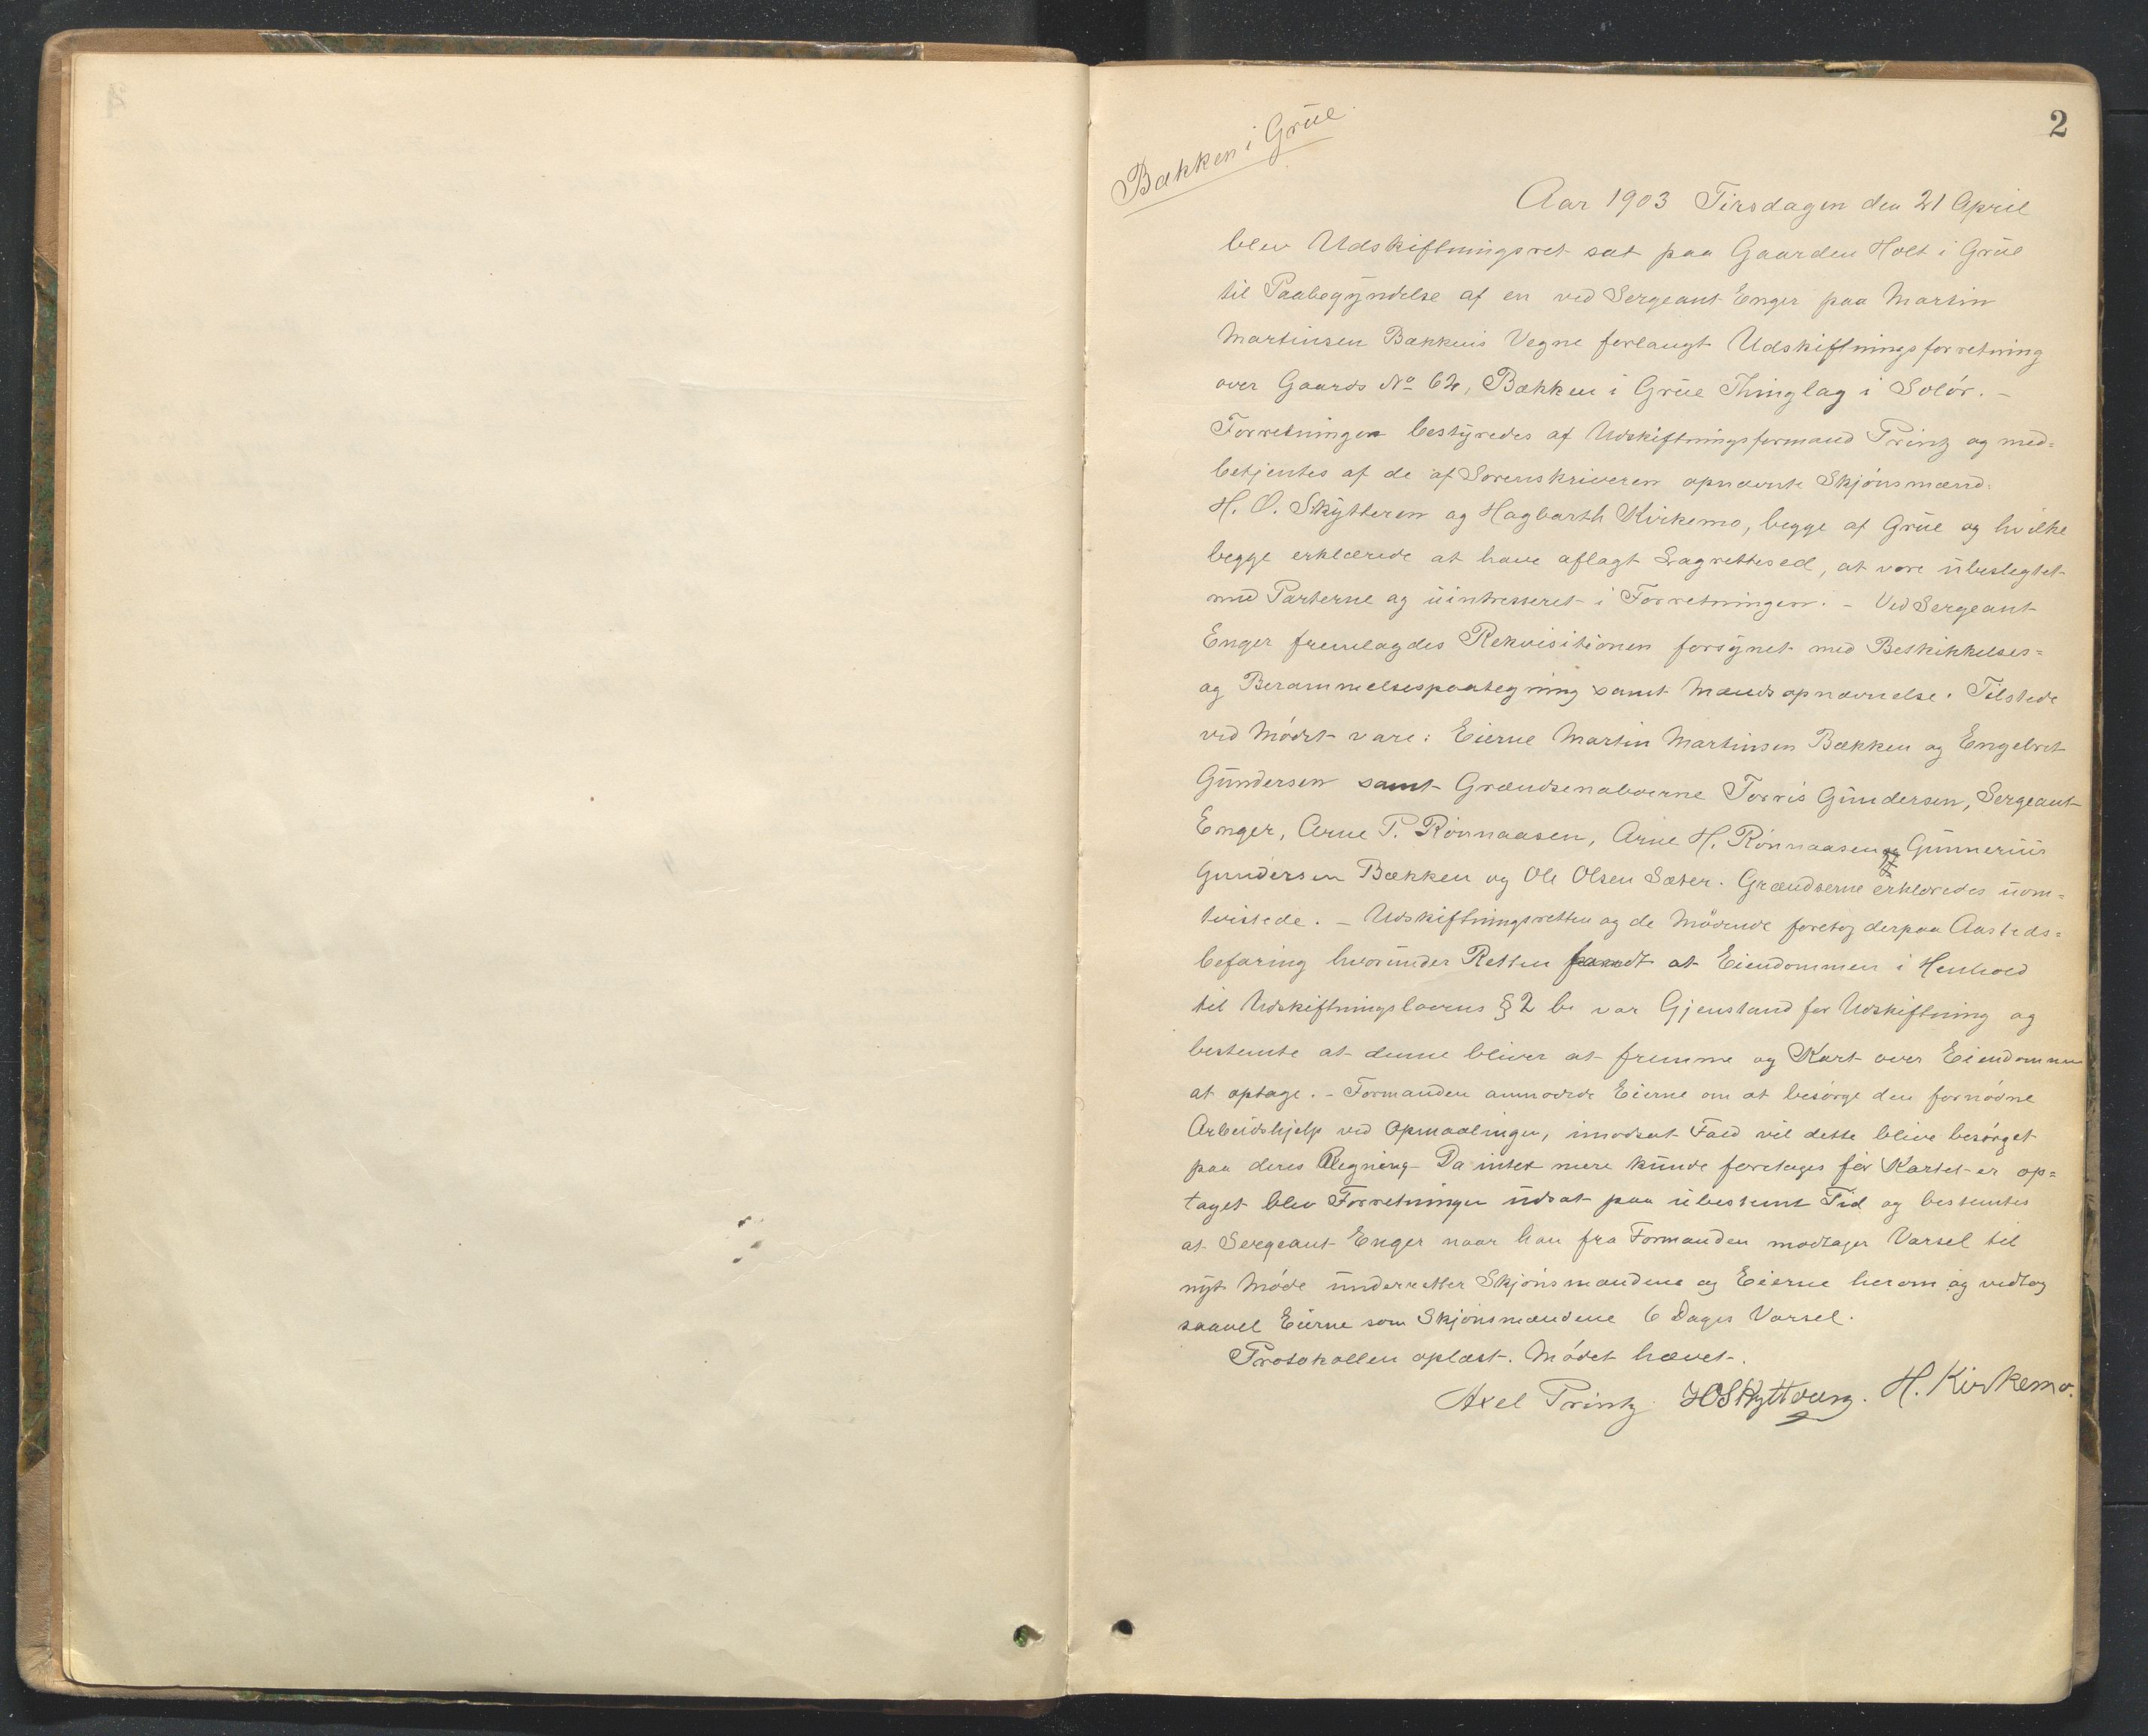 2
Bækken i Grue
Aar 1903 Tirsdagen den 21 April
blev Udskiftningsret sat paa Gaarden Holt i Grue
til Paabegyndelse af en ved Sergeant Enger paa Martin
Martinsen Bækkens Vegne forlangt Udskiftningsforretning
over Gaards No 62, Bækken i Grue Thinglag i Solør. –
Forretningen bestyredes af Udskiftningsformand Printz og med=
betjentes af de af Sorenskriveren opnævnte Skjønsmænd:
H. O. Skytteren og Hagbarth Kirkemo, begge af Grue og hvilke
begge erklærede at have aflagt Lagrettesed, at være ubeslegtet
med Parterne og uintresseret i Forretningen. – Ved Sergeant
Enger fremlagdes Rekvisitionen forsynet med Beskikkelses=
og Berammelsespaategning samt Mandsopnævnelse. Tilstede
ved Mødet vare: Eierne Martin Martinsen Bækken og Engebret
Gundersen samt Grændsenaboerne Torris Gundersen, Sergeant
Enger, Arne P. Rønnaasen, Arne H. Rønnaasen og Gunnerius
Gundersen Bækken og Ole Olsen Sæter. Grændserne erklæredes uom=
tvistede. – Udskiftningsretten og de Mødende foretog derpaa Aasteds=
befaring hvorunder Retten fandt at Eiendommen i Henhold
til Udskiftningslovens § 2 b var Gjenstand for Udskiftning og
bestemte at denne bliver at fremme og Kart over Eiendommen
at optage. – Formanden anmodede Eierne om at besørge den fornødne
Arbeidshjelp ved Opmaalingen, imodsat Fald vil dette blive besørget
paa deres Regning – Da intet mere kunde foretages før Kartet er op=
taget blev Forretningen udsat paa ubestemt Tid og bestemtes
at Sergeant Enger naar han fra Formanden modtager Varsel til
nyt Møde underretter Skjønsmændene og Eierne herom og vedtog
saavel Eierne som Skjønsmændene 6 Dages Varsel.
Protokollen oplæst. Mødet hævet.
Axel Printz. HOSkytteren. H. Kirkemo.